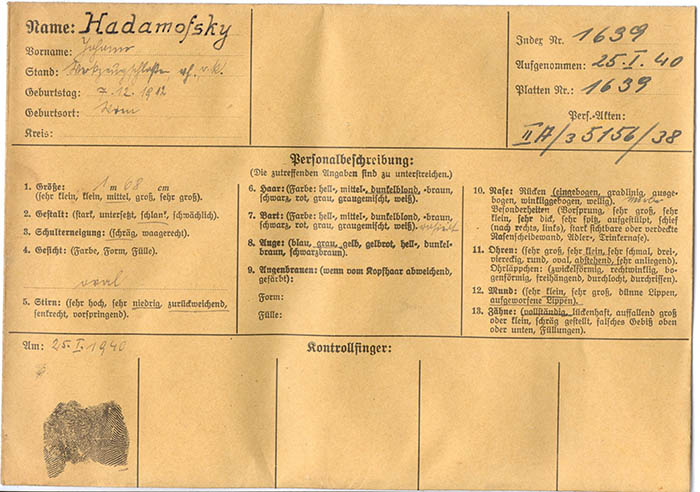 Name: Hadamofsky
Vorname: Johann
Stand: Werkzeugschlosser vh. r.k.
Geburtstag: 7.12.1912
Geburtsort: Wien
Kreis:
Index Nr. 1639
Aufgenommen: 25.I.40
Platten Nr.: 1639
Pers.-Akten:
II A/35156/38
Personalbeschreibung:
(Die zutreffenden Angaben sind zu unterstreichen.)
1. Größe: 1 m 68 cm
(sehr klein, klein, mittel, groß, sehr groß).
2. Gestalt: (stark, untersetzt, schlank, schwächlich).
3. Schulterneigung: (schräg, waagerecht).
4. Gesicht: (Farbe, Form, Fülle).
oval
5. Stirn: (sehr hoch, sehr niedrig, zurückweichend,
senkrecht, vorspringend).
6. Haar: (Farbe: hell-, mittel-, dunkelblond, -braun,
schwarz, rot, grau, graugemischt, weiß).
7. Bart: (Farbe: hell-, mittel-, dunkelblond, -braun,
schwarz, rot, grau, graugemischt, weiß). rasiert
8. Auge: (blau, grau, gelb, gelbrot, hell-, dunkel-
braun, schwarzbraun).
9. Augenbrauen: (wenn vom Kopfhaar abweichend,
gefärbt):
Form:
Fülle:
10. Nase: Rücken (eingebogen, gradlinig, ausge-
bogen, winkliggebogen, wellig).
Besonderheiten (Vorsprung, sehr groß, sehr
klein, sehr dick, sehr spitz, aufgestülpt, schief
(nach rechts, links), stark sichtbare oder verdeckte
Nasenscheidewand, Adler-, Trinkernase).
11. Ohren: (sehr groß, sehr klein, sehr schmal, drei-
viereckig, rund, oval, abstehend, sehr anliegend).
Ohrläppchen: (zwickelförmig, rechtwinklig, bo-
genförmig, freihängend, durchlocht, durchrissen).
12. Mund: (sehr klein, sehr groß, dünne Lippen,
aufgeworfene Lippen).
13. Zähne: (vollständig, lückenhaft, auffallend groß
oder klein, schräg gestellt, falsches Gebiß oben
oder unten, Füllungen).
Am: 25.I.1940
Kontrollfinger: